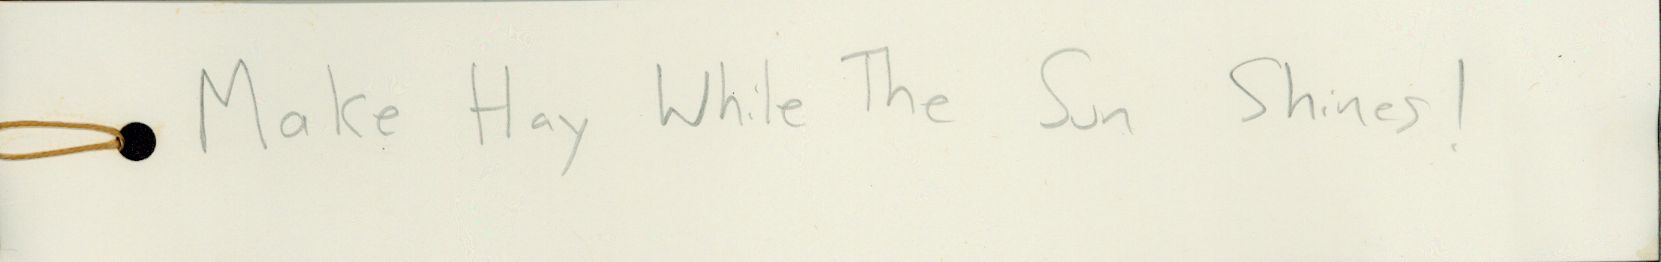 Make Hay While The Sun Shines!